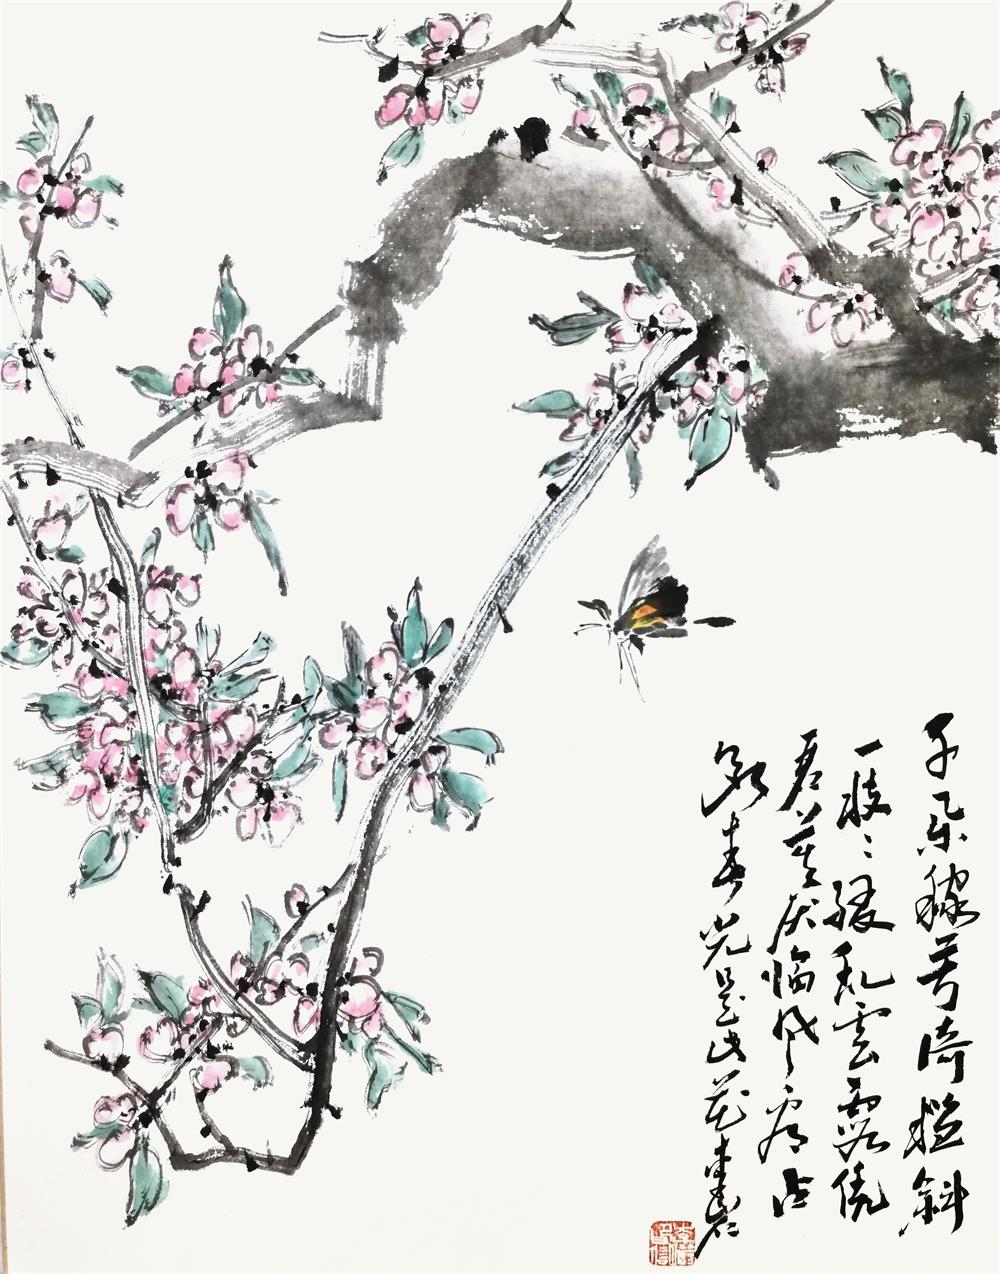 千朵秾芳倚槛斜
一枝〻缀乱雲霞凭
君莫厌临风看占
断春光是此花